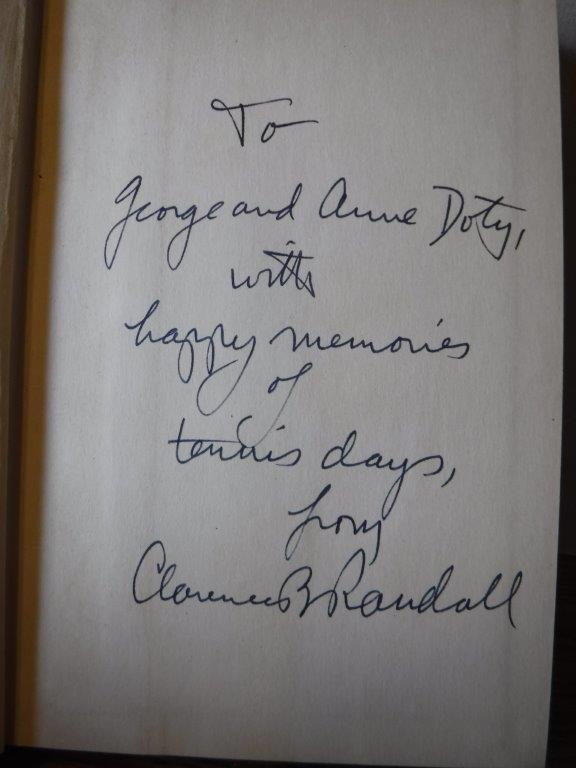 To
George and Anne Doty,
with
happy memories
of
tennis days,
from
Clarence B Randall